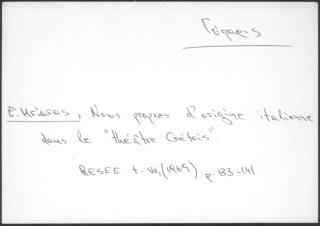 E. Kriaras, Noms propres d'origine italienne
dans le "théâtre Crétois".
RESEE t. VII, (1969) p. 133-141